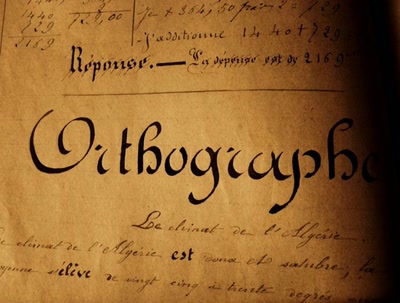 1440
729
2169
729,00
J'additionne 1440 + 729
Réponse. — La dépense est de 2169
Orthographe
Le climat de l'Algérie
climat de l'Algérie est doux et salubre, la
s'élève de vingt cinq à trente degrés